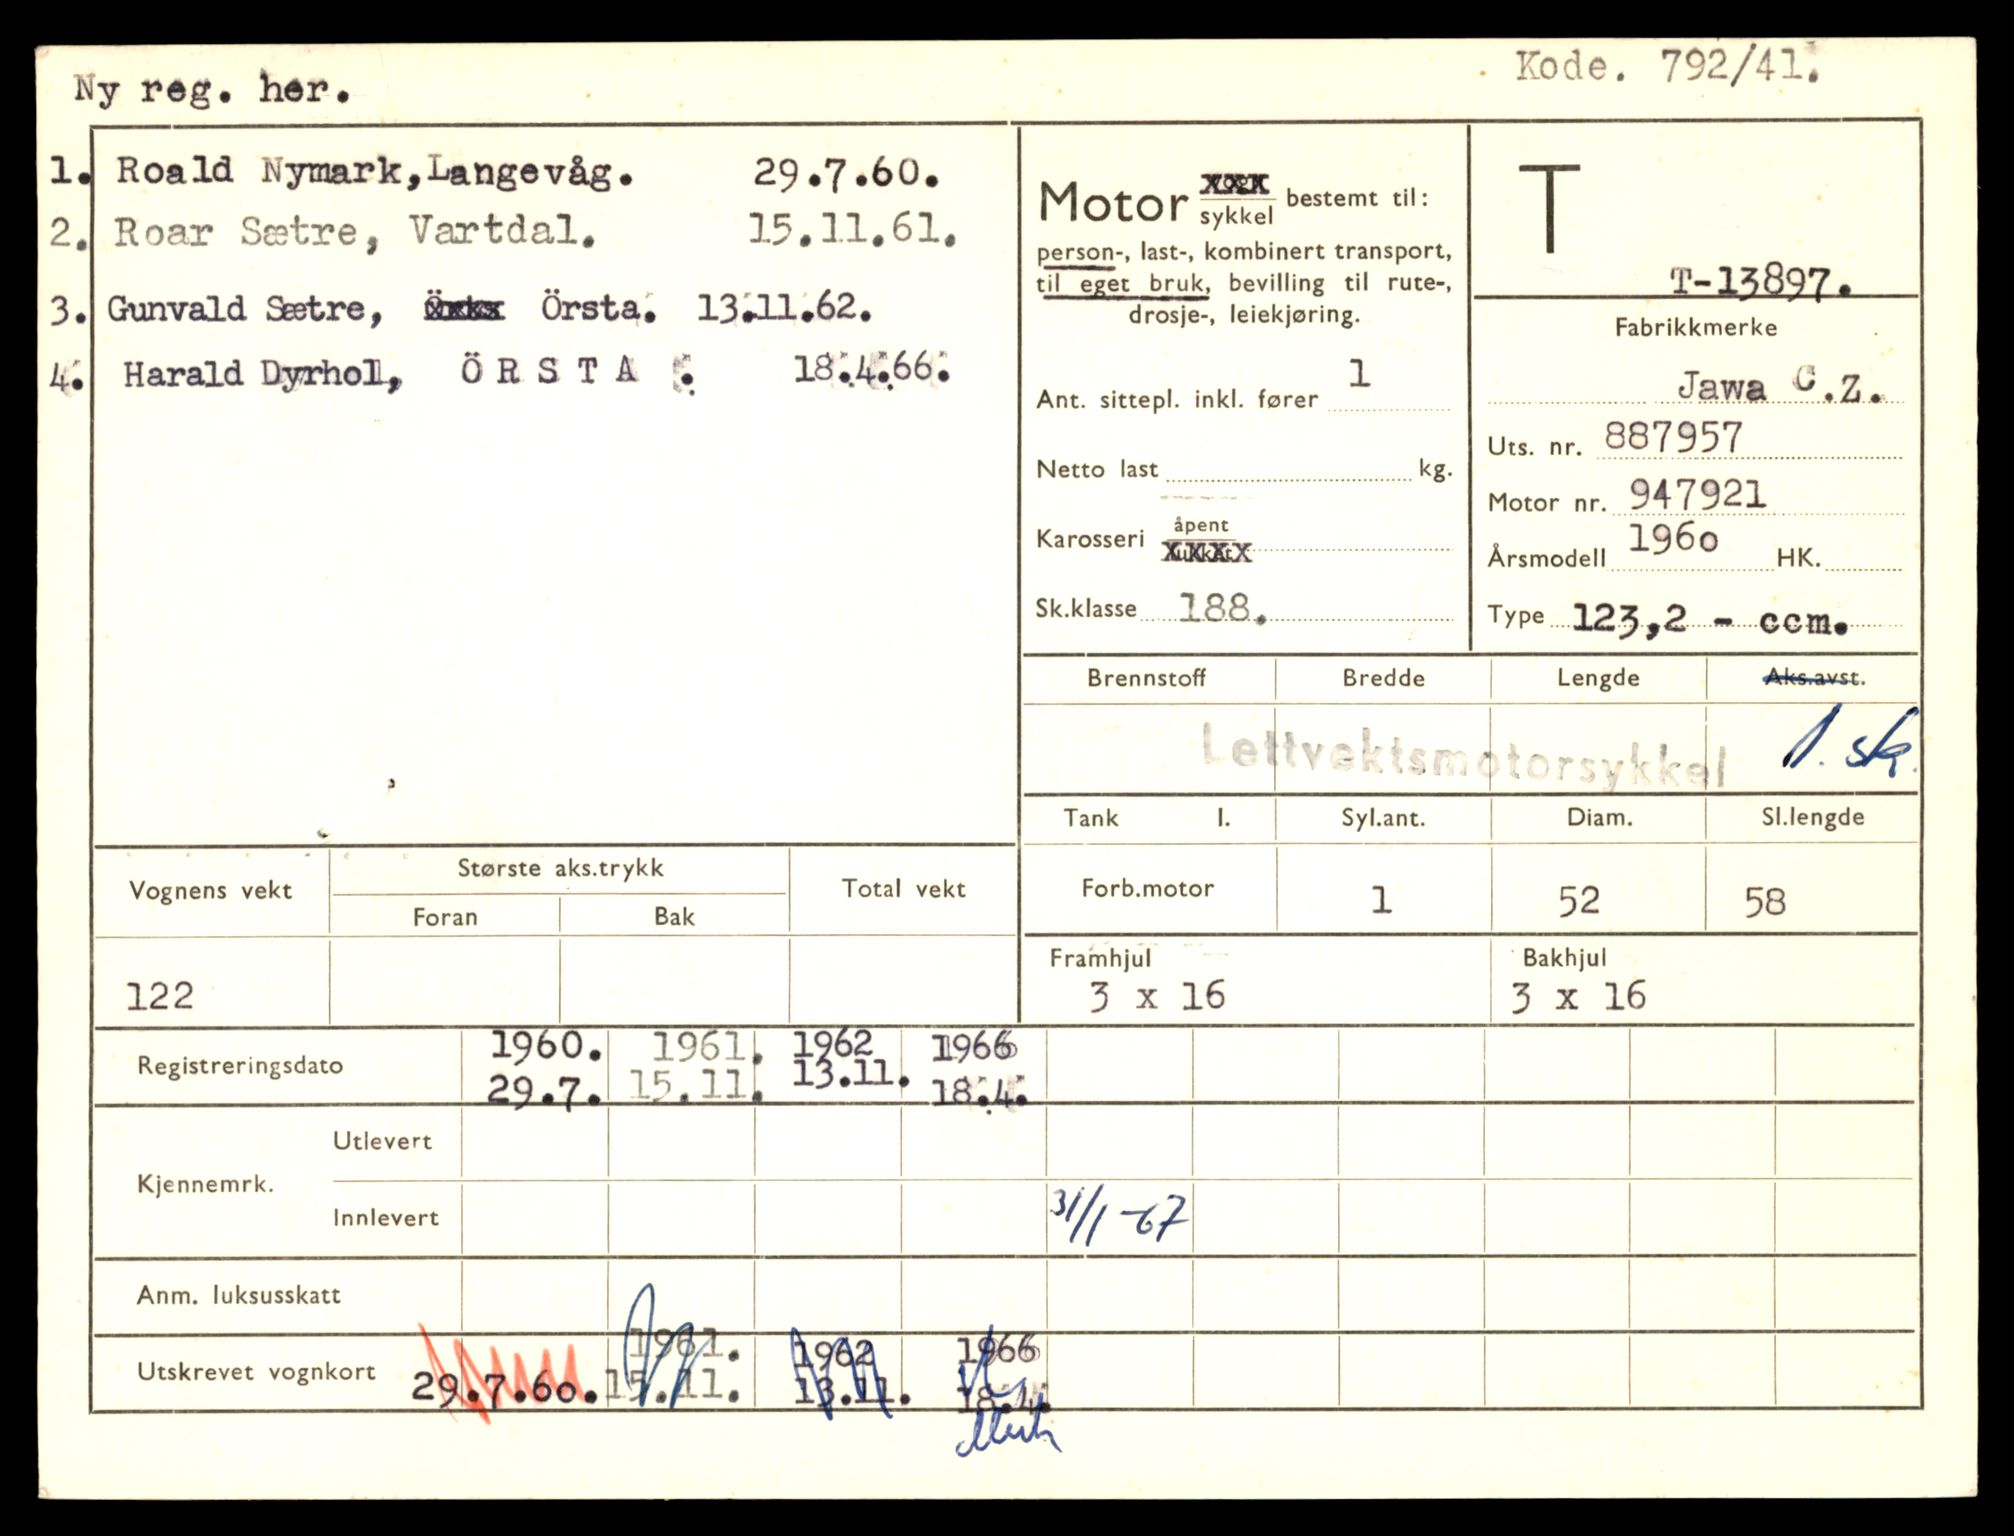 Ny reg. her.
Kode. 792/41.
1. Roald Nymark,Langevåg. 29.7.60.
2. Roar Sætre, Vartdal. 15.11.61.
3. Gunvald Sætre, Örsta. 13.11.62.
4. Harald Dyrhol, ÖRSTA . 18.4.66.
Motor
xxx
sykkel
bestemt til:
person-, last-, kombinert transport,
til eget bruk, bevilling til rute-,
drosje-, leiekjøring.
Ant. sittepl. inkl. fører 1
Netto last kg.
Karosseri åpent
xxxx
Sk.klasse 188.
T
T-13897.
Fabrikkmerke
Jawa C.Z.
Uts. nr. 887957
Motor nr. 947921
Årsmodell 196o HK.
Type 123,2 - ccm.
Brennstoff Bredde Lengde Aks.avst.
Lettvektsmotorsykkel 1. sk.
Tank l. Syl.ant. Diam. Sl.lengde
Forb.motor 1 52 58
Framhjul Bakhjul
3 x 16 3 x 16
Vognens vekt Største aks.trykk Total vekt
Foran Bak
122
Registreringsdato 1960. 1961. 1962 1966
29.7. 15.11. 13.11. 18.4.
Kjennemrk.
Utlevert
Innlevert 31/1-67
Anm. luksusskatt
Utskrevet vognkort 29.7.6o. 1961. 1962 1966
15.11. 13.11. 18.4.